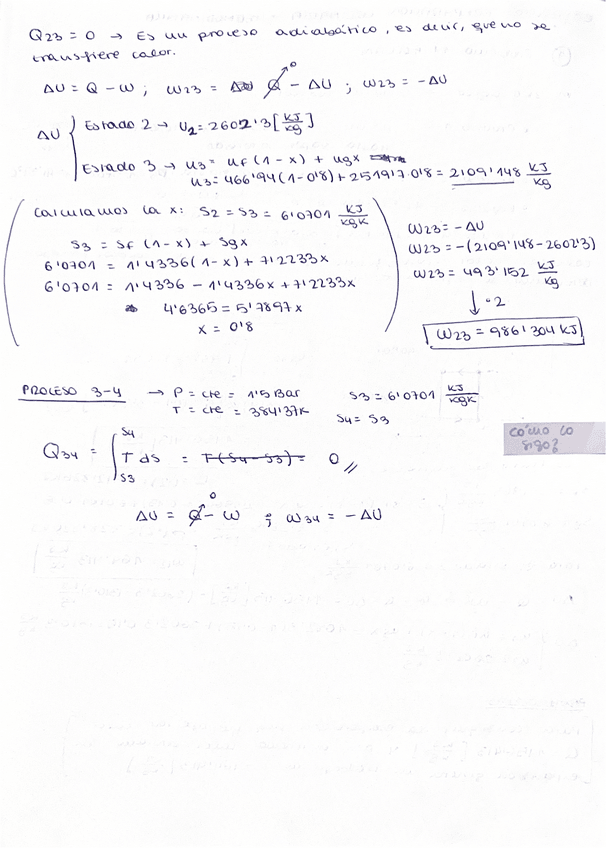 Q23 = 0 → Es un proceso adiabático, es decir, que no se
transfiere calor.
ΔU = Q - W ; W23 = Q - ΔU ; W23 = -ΔU
0
ΔU { Estado 2 → U2 = 2602'3 [KJ/kg]
Estado 3 → u3 = uf (1-x) + ugx
u3 = 466'94(1-0'8) + 2519'7·0'8 = 2109'148 KJ/kg
Calculamos la x: S2 = S3 = 6'0701 KJ/kgK
S3 = Sf (1-x) + Sgx
6'0701 = 1'4336(1-x) + 7'2233x
6'0701 = 1'4336 - 1'4336x + 7'2233x
4'6365 = 5'7897x
x = 0'8
W23 = -ΔU
W23 = -(2109'148-2602'3)
W23 = 493'152 KJ/kg
↓ ·2
W23 = 986'304 KJ
PROCESO 3-4 → P = cte = 1'5 Bar
T = cte = 384'37K
S3 = 6'0701 KJ/kgK
S4 = S3
Q34 = ∫ S3 S4 T ds = T(S4-S3) = 0 //
cómo lo
sigo?
0
ΔU = Q - W ; W34 = -ΔU